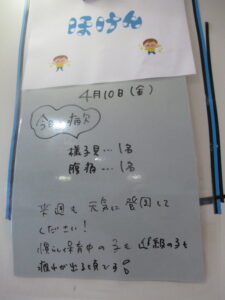 4月10日(金)
今日の病欠
様子見…1名
腹痛…1名
来週も元気に登園して
ください!
慣らし保育中の子も進級の子も
疲れが出る頃です